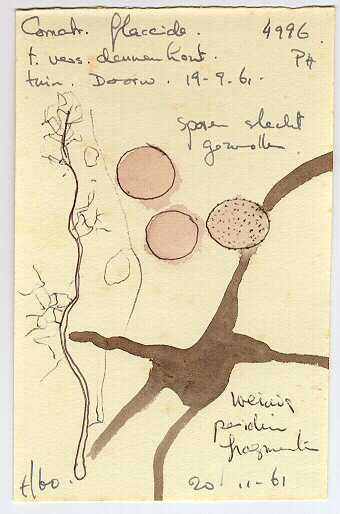 Comatr. flaccida. 4996.
t. vers. dennenhout. PH
tuin. Doorn. 19-9-61.
sporen slecht
gezwollen.
weinig
peridium
fragmenten
20 11-61